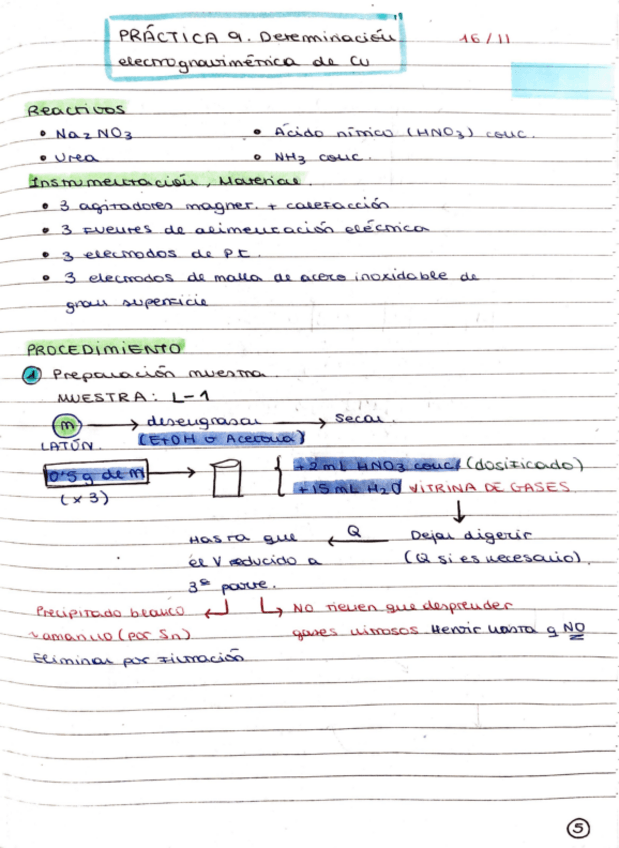 PRÁCTICA 9. Determinación 16/11
electrogravimétrica de Cu
Reactivos
• Na2NO3 • Ácido nítrico (HNO3) conc.
• Urea • NH3 conc.
Instrumentación, Material
• 3 agitadores magnet. + calefacción
• 3 fuentes de alimentación eléctrica
• 3 electrodos de Pt.
• 3 electrodos de malla de acero inoxidable de
gran superficie
PROCEDIMIENTO
1 Preparación muestra.
MUESTRA: L-1
m → desengrasar → secar.
LATÓN. (EtOH o Acetona)
0'5 g de m → { +2 mL HNO3 conc. (dosificado)
(x3) +15 mL H2O VITRINA DE GASES
↓
Hasta que ← Q Dejar digerir
el V reducido a (Q si es necesario).
3ª parte.
Precipitado blanco ↲ ↳ NO tienen que desprender
+ amarillo (por Sn) gases nitrosos Hervir hasta q NO
Eliminar por filtración
5